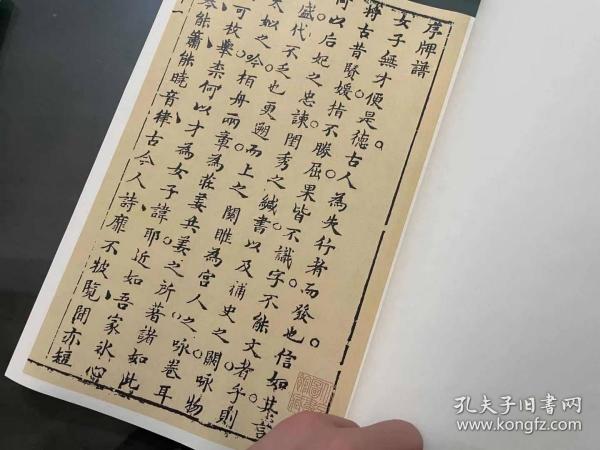 序牌譜
女子無才便是德古人為失行者而發也信如其言
將古昔賢媛指不勝屈果皆不識字不能文者乎則
何以后妃之忠諫閨秀之緘書以及補史之闕咏物
盛代不乏也更遡而上之關雎為宮人之咏卷耳
太姒之吟柏舟兩章為莊姜共姜之所著諸如此
可枚舉柰何以才為女子諱耶近如吾家氷
能簫能曉音律古今人詩靡不披覽間亦
孔夫子旧书网
www.kongfz.com